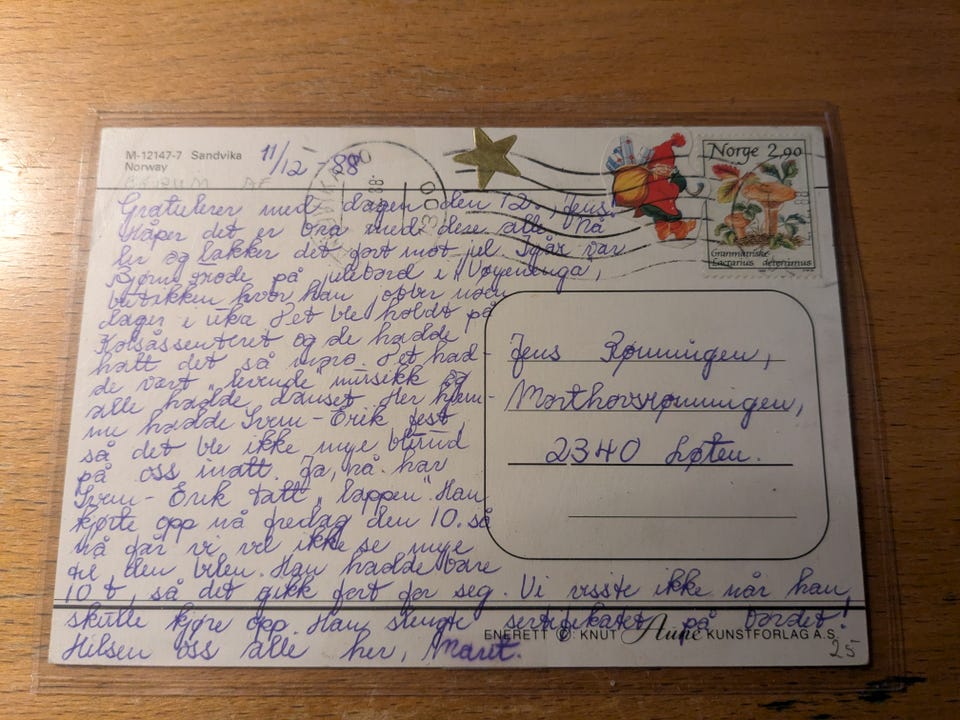 M-12147-7 Sandvika
Norway
11/12 -88
Norge 2,90
Granmatriske
Lactarius deterrimus
Gratulerer med dagen den 12., Jens!
Håper det er bra med dere alle nå
her og lakker det fort mot jul. Igår var
på julebord i Vøyenenga,
butikken hvor han jobber noen
dager i uka. Det ble holdt på
Kolsåssenteret og de hadde
hatt det så moro. Det had-
de vært "levende" musikk og
alle hadde danset. Her hjem-
me hadde Svein-Erik fest,
så det ble ikke mye blund
på oss inatt. Ja, nå har
Svein-Erik tatt "lappen". Han
kjørte opp nå fredag den 10. så
nå får vi vel ikke se mye
til den bilen. Han hadde bare
10 t, så det gikk fort for seg. Vi visste ikke når han
skulle kjøre opp. Han slengte sertifikatet på bordet!
Hilsen oss alle her, Maret.
Jens Rønningen,
Morthovsrønningen,
2340 Løten.
ENERETT © KNUT Aune KUNSTFORLAG A.S.
25